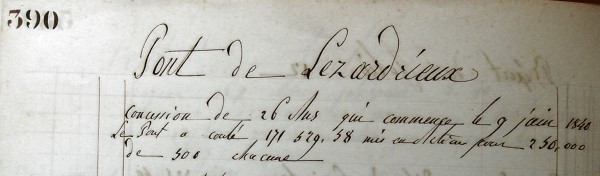 390
Pont de Lezardrieux
Concession de 26 Ans qui commence le 9 juin 1840
Le Pont a couté 171 529,58 mis en Action pour 250,000
de 500 chacune